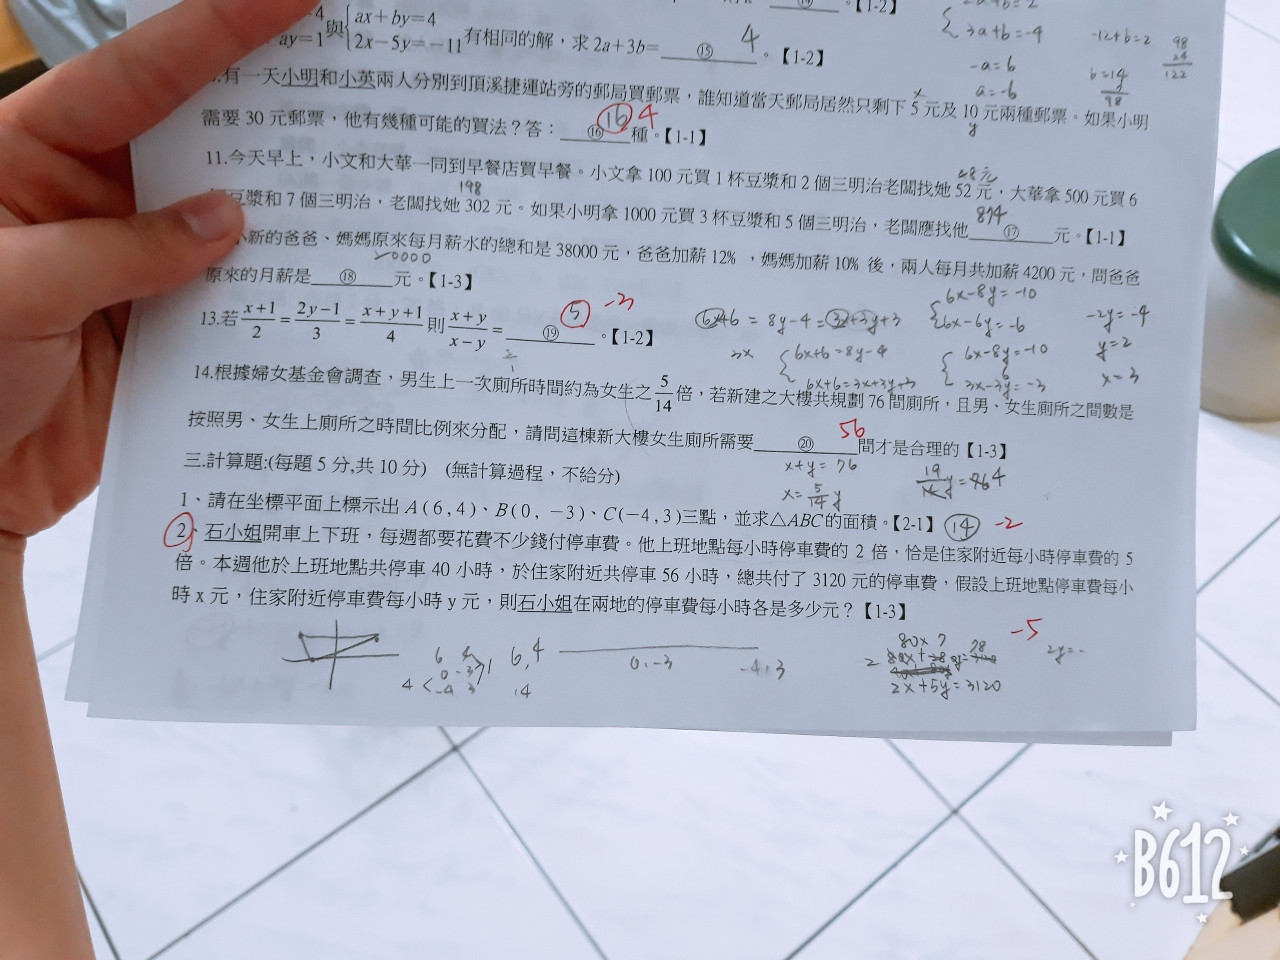 ⑭ 。【1-2】
2a+b=2
3a+b=-4
-a=6
a=-6
-12+b=2
b=14
98
98
24
122
=4
ay=1
與
ax+by=4
2x-5y=-11
有相同的解，求 2a+3b= ⑮ 4 。【1-2】
有一天小明和小英兩人分別到頂溪捷運站旁的郵局買郵票，誰知道當天郵局居然只剩下 5 元及 10 元兩種郵票。如果小明
x
y
需要 30 元郵票，他有幾種可能的買法？答： ⑯ 16 4 種。【1-1】
11.今天早上，小文和大華一同到早餐店買早餐。小文拿 100 元買 1 杯豆漿和 2 個三明治老闆找她 52 元，大華拿 500 元買 6
48元
豆漿和 7 個三明治，老闆找她 302 元。如果小明拿 1000 元買 3 杯豆漿和 5 個三明治，老闆應找他 ⑰ 874 元。【1-1】
198
小新的爸爸、媽媽原來每月薪水的總和是 38000 元，爸爸加薪 12% ，媽媽加薪 10% 後，兩人每月共加薪 4200 元，問爸爸
原來的月薪是 ⑱ 20000 元。【1-3】
13.若 (x+1)/2 = (2y-1)/3 = (x+y+1)/4 則 (x+y)/(x-y) = ⑲ 5 。【1-2】
-3
6x+6 = 8y-4 = 3x+3y+3
6x+6=8y-4
6x+6=3x+3y+3
6x-8y=-10
6x-6y=-6
6x-8y=-10
3x-3y=-3
-2y=-4
y=2
x=3
14.根據婦女基金會調查，男生上一次廁所時間約為女生之 5/14 倍，若新建之大樓共規劃 76 間廁所，且男、女生廁所之間數是
按照男、女生上廁所之時間比例來分配，請問這棟新大樓女生廁所需要 ⑳ 56 間才是合理的【1-3】
x+y=76
x=5/14 y
三.計算題:(每題 5 分,共 10 分) (無計算過程，不給分)
1、請在坐標平面上標示出 A(6,4)、B(0,−3)、C(−4,3)三點，並求△ABC的面積。【2-1】 14 -2
2、石小姐開車上下班，每週都要花費不少錢付停車費。他上班地點每小時停車費的 2 倍，恰是住家附近每小時停車費的 5
倍。本週他於上班地點共停車 40 小時，於住家附近共停車 56 小時，總共付了 3120 元的停車費，假設上班地點停車費每小
時 x 元，住家附近停車費每小時 y 元，則石小姐在兩地的停車費每小時各是多少元？【1-3】
-5
6 4
0 -3
-4 3
6,4
14
0,-3
-4,3
80x 7
2x+5y=3120
2y=-
B612